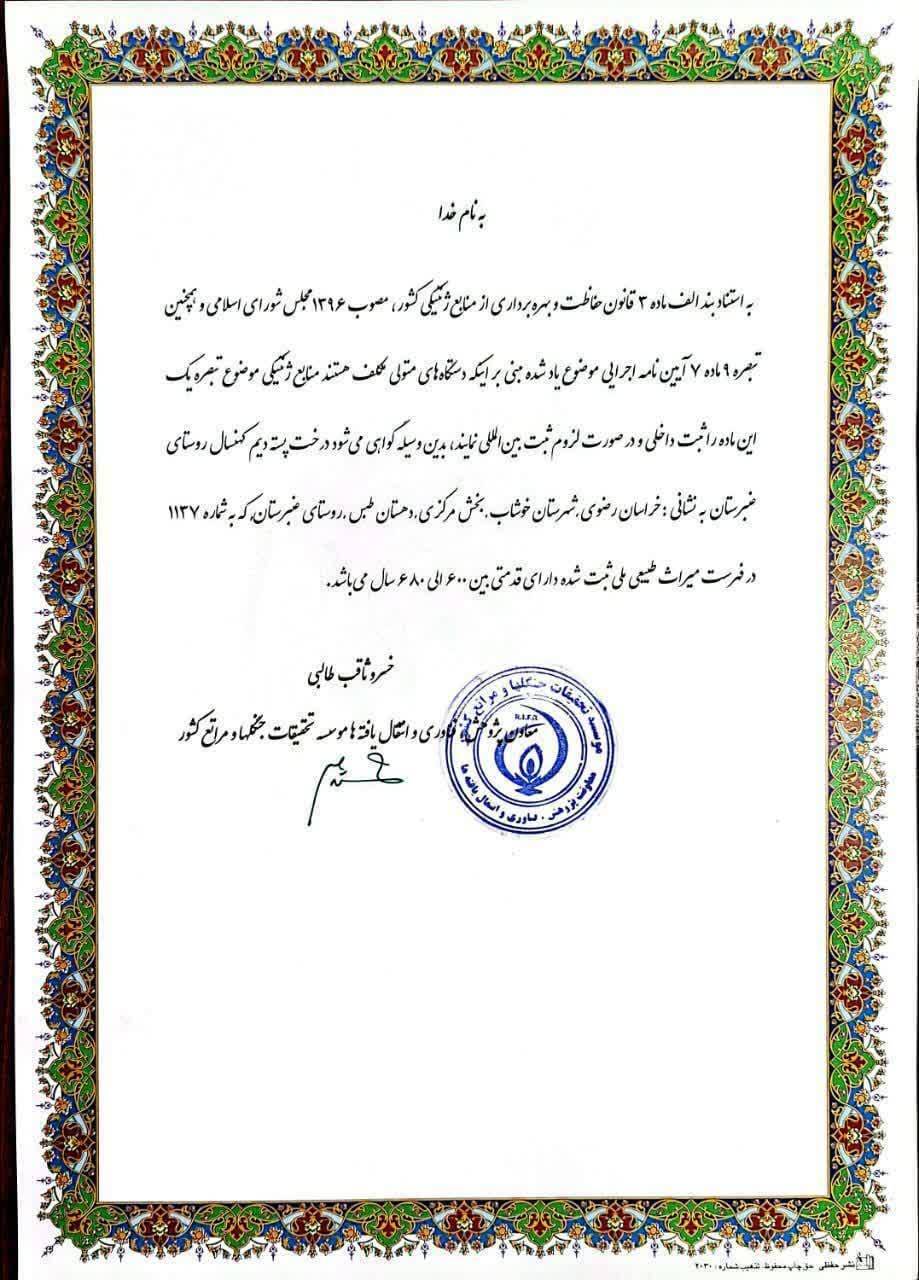 به نام خدا
به استناد بند الف ماده ۳ قانون حفاظت و بهره برداری از منابع ژنتیکی کشور، مصوب ۱۳۹۶ مجلس شورای اسلامی و همچنین
تبصره ۹ ماده ۷ آیین نامه اجرایی موضوع یاد شده مبنی بر اینکه دستگاه‌های متولی مکلف هستند منابع ژنتیکی موضوع تبصره یک
این ماده را ثبت داخلی و در صورت لزوم ثبت بین‌المللی نمایند، بدین وسیله گواهی می‌شود درخت پسته دیم کهنسال روستای
عنبرستان به نشانی : خراسان رضوی، شهرستان خوشاب، بخش مرکزی، دهستان طبس، روستای عنبرستان، که به شماره ۱۱۳۷
در فهرست میراث طبیعی ملی ثبت شده دارای قدمتی بین ۶۰۰ الی ۶۸۰ سال می‌باشد.
خسرو ثاقب طالبی
معاون پژوهش، فناوری و انتقال یافته ها موسسه تحقیقات جنگلها و مراتع کشور
موسسه تحقیقات جنگلها و مراتع کشور
R.I.F.R.
معاونت پژوهش، فناوری و انتقال یافته ها
نشر حفظی حق چاپ محفوظ. تذهیب شماره : ۲۰۳۰